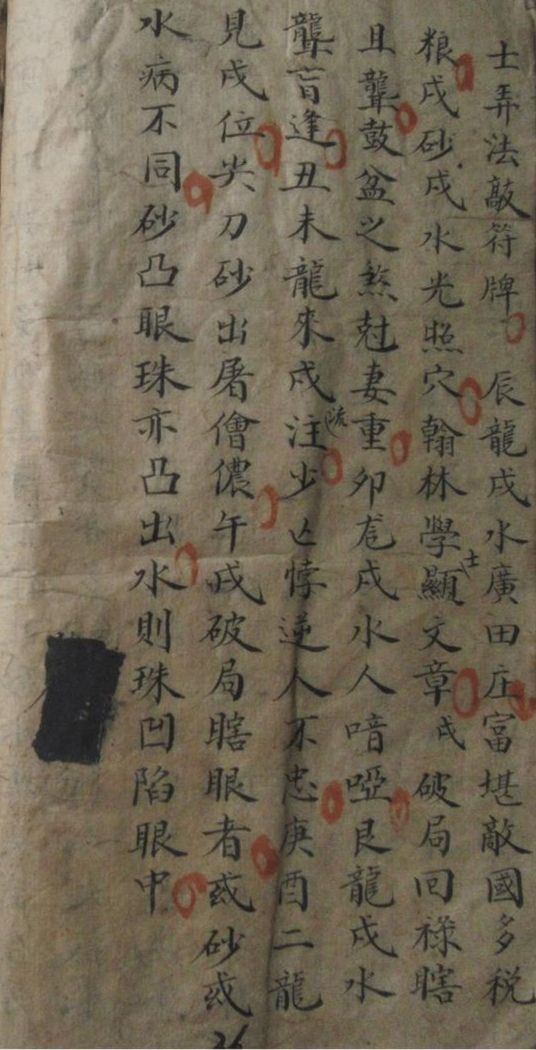 士弄法敲符牌 辰龍戌水廣田庄富堪敵國多税
粮戌砂戌水光照穴翰林學士顯文章戌破局回禄瞎
且聾鼓盆之煞尅妻重卯龙戌水人喑啞艮龍戌水
聾盲逢丑未龍來戌注流少亡悖逆人不忠庚酉二龍
見戌位尖刀砂出屠儈儂午戌破局瞎眼者或砂或
水病不同砂凸眼珠亦凸出水則珠凹陷眼中
26